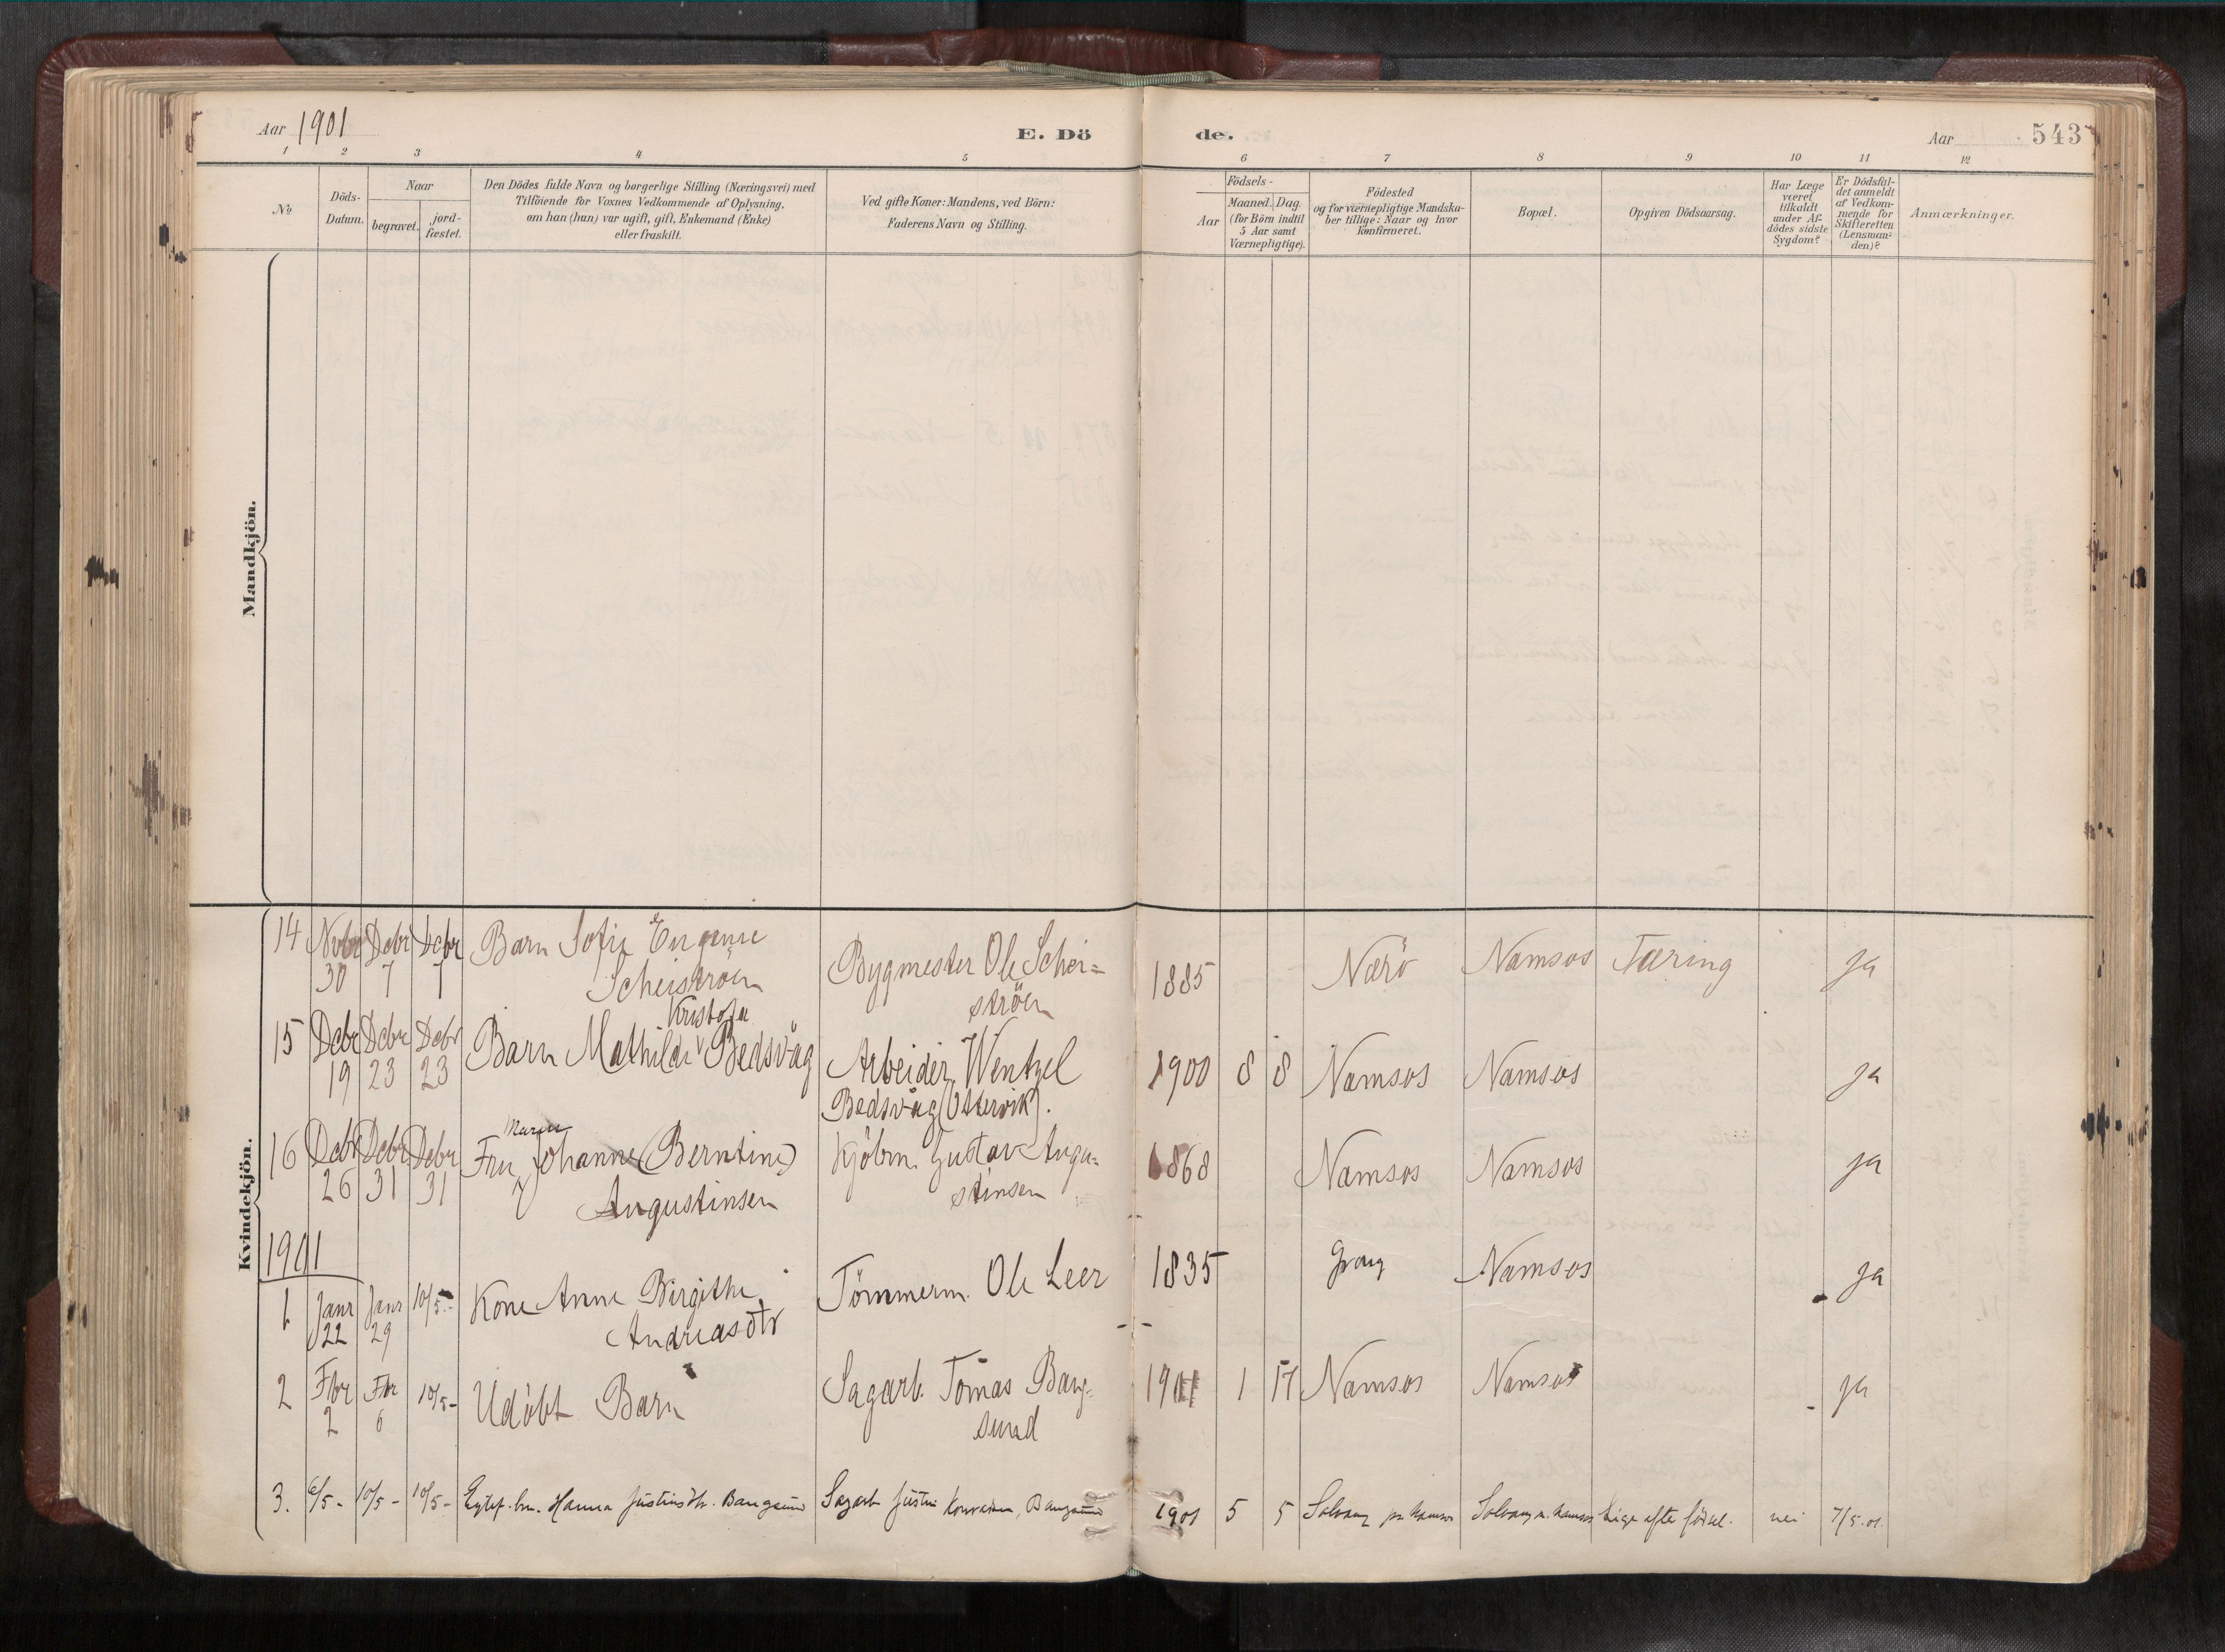 Aar 1901
E. Dö
de.
Aar
543
1 2 3 4 5 6 7 8 9 10 11 12
No
Döds-
Datum.
Naar
begravet.
jord-
fæstet.
Den Dödes fulde Navn og borgerlige Stilling (Næringsvei) med
Tilföiende for Voxnes Vedkommende af Oplysning,
om han (hun) var ugift, gift, Enkemand (Enke)
eller fraskilt.
Ved gifte Koner: Mandens, ved Börn:
Faderens Navn og Stilling.
Födsels-
Aar
Maaned. Dag
(for Börn indtil
5 Aar samt
Værnepligtige).
Födested
og for værnepligtige Mandska-
ber tillige: Naar og hvor
konfirmeret.
Bopæl.
Opgiven Dödsaarsag.
Har Læge
været
tilkaldt
under Af-
dödes sidste
Sygdom?
Er Dödsfal-
det anmeldt
af Vedkom-
mende for
Skifteretten
(Lensman-
den)?
Anmærkninger.
Mandkjön.
Kvindekjön.
14 Nvbr Debr Debr Barn Sofie Eugenie
30 7 7 Scheiströen
Bygmester Ole Schei=
ströen
1885 Nærö Namsos Tæring ja
Kristofa
15 Debr Debr Debr Barn Mathilde Bedsvåg
19 23 23
Arbeider Wentzel
Bedsvåg (Ottervik).
1900 8 8 Namsos Namsos ja
Maren
16 Debr Debr Debr Fru Johanne (Berntine)
26 31 31 Augustinsen
Kjöbm. Gustav Augu=
stinsen
1868 Namsos Namsos ja
1901
1. Janr Janr 10/5- Kone Anne Birgithe
22 29 Andreasdtr
Tömmerm. Ole Leer
1835 Grong Namsos ja
2 Fbr Fbr 10/5- Udöbt Barn
2 6
Sagarb. Tomas Bang=
sund
1901 1 17 Namsos Namsos ja
3. 6/5- 10/5- 10/5- Egtef. bn. Hanna Justinsdtr. Bangsund
Sagarb. Justin Konradsen, Bangsund
1901 5 5 Solvang pr Namsos Solvang n. Namsos Lige efter födsel. nei 7/5.01.